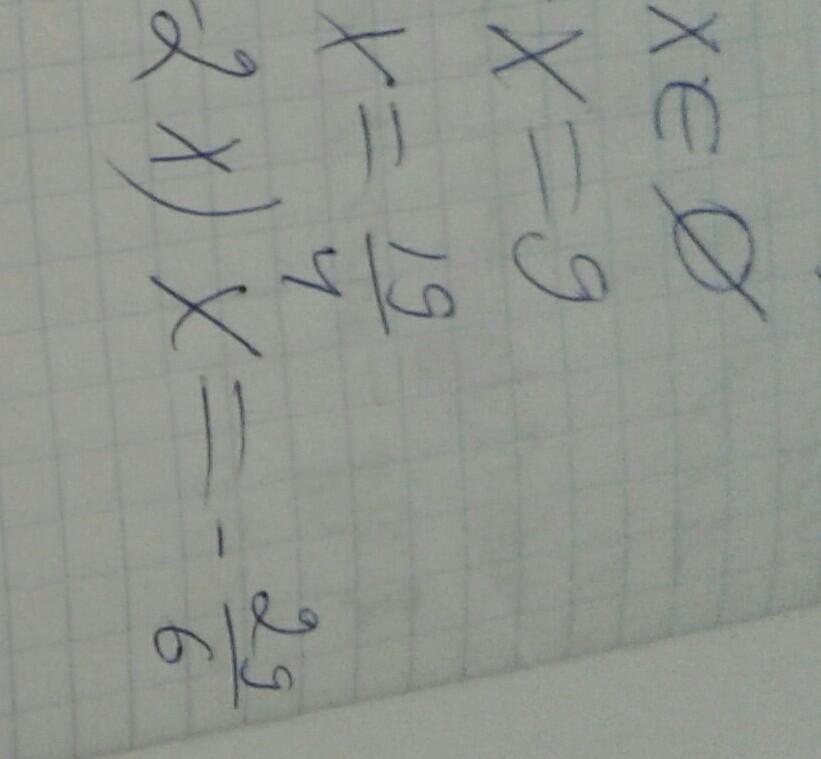 x ∈ ∅
x = 9
x = 19/4
2x) x = - 29/6